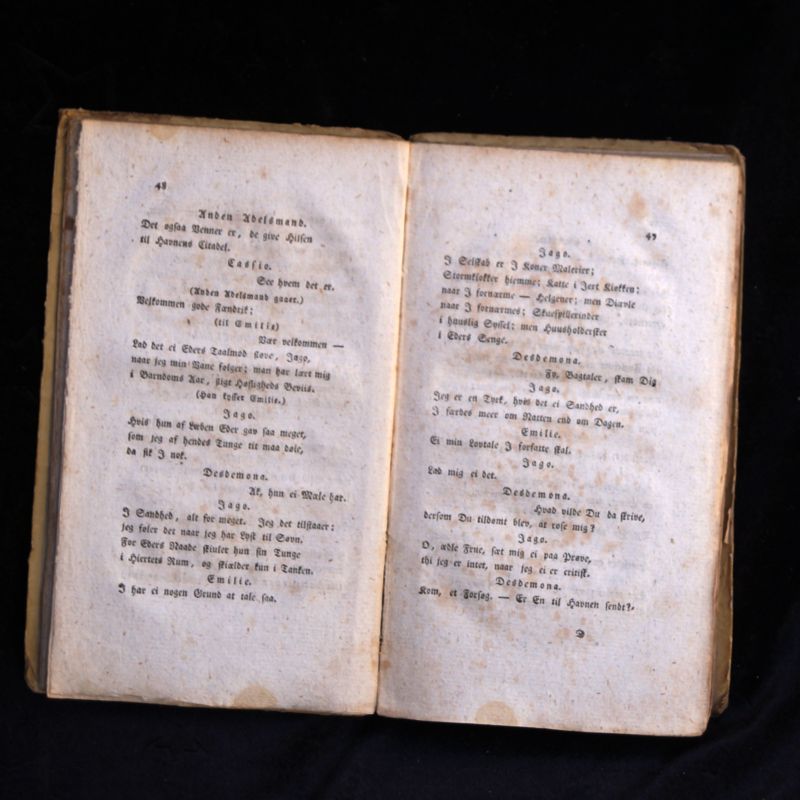 48
Anden Adelsmand.
Det ogsaa Venner er, de give Hilsen
til Havnens Citadel.
Cassio.
See hvem det er.
(Anden Adelsmand gaaer.)
Velkommen gode Fændrik;
(til Emilie)
Vær velkommen —
Lad det ei Eders Taalmod støve, Jago,
naar jeg min Vane følger; man har lært mig
i Barndoms Aar, sligt Høfligheds Beviis.
(Han kysser Emilie.)
Jago.
Hvis hun af Læben Eder gav saa meget,
som jeg af hendes Tunge tit maa døie,
da fik I nok.
Desdemona.
Ak, hun ei Mæle har.
Jago.
I Sandhed, alt for meget. Jeg det tilstaaer;
jeg føler det naar jeg har Lyst til Søvn.
For Eders Naade skiuler hun sin Tunge
i Hierters Rum, og skielder kun i Tanken.
Emilie.
I har ei nogen Grund at tale saa.
49
Jago.
I Selskab er I Koner Malerier;
Stormklokker hiemme; Katte i Jert Kiøkken;
naar I fornærme — Helgener; men Diævle
naar I fornærmes; Skuespillerinder
i huuslig Syssel; men Huusholdersker
i Eders Senge.
Desdemona.
Fy, Bagtaler, skam Dig
Jago.
Jeg er en Tyrk, hvis det ei Sandhed er,
I færdes meer om Natten end om Dagen.
Emilie.
Ei min Lovtale I forfatte skal.
Jago.
Lad mig ei det.
Desdemona.
Hvad vilde Du da skrive,
dersom Du tildømt blev, at rose mig?
Jago.
O, ædle Frue, sæt mig ei paa Prøve,
thi jeg er intet, naar jeg ei er critisk.
Desdemona.
Kom, et Forsøg. — Er En til Havnen sendt?
D